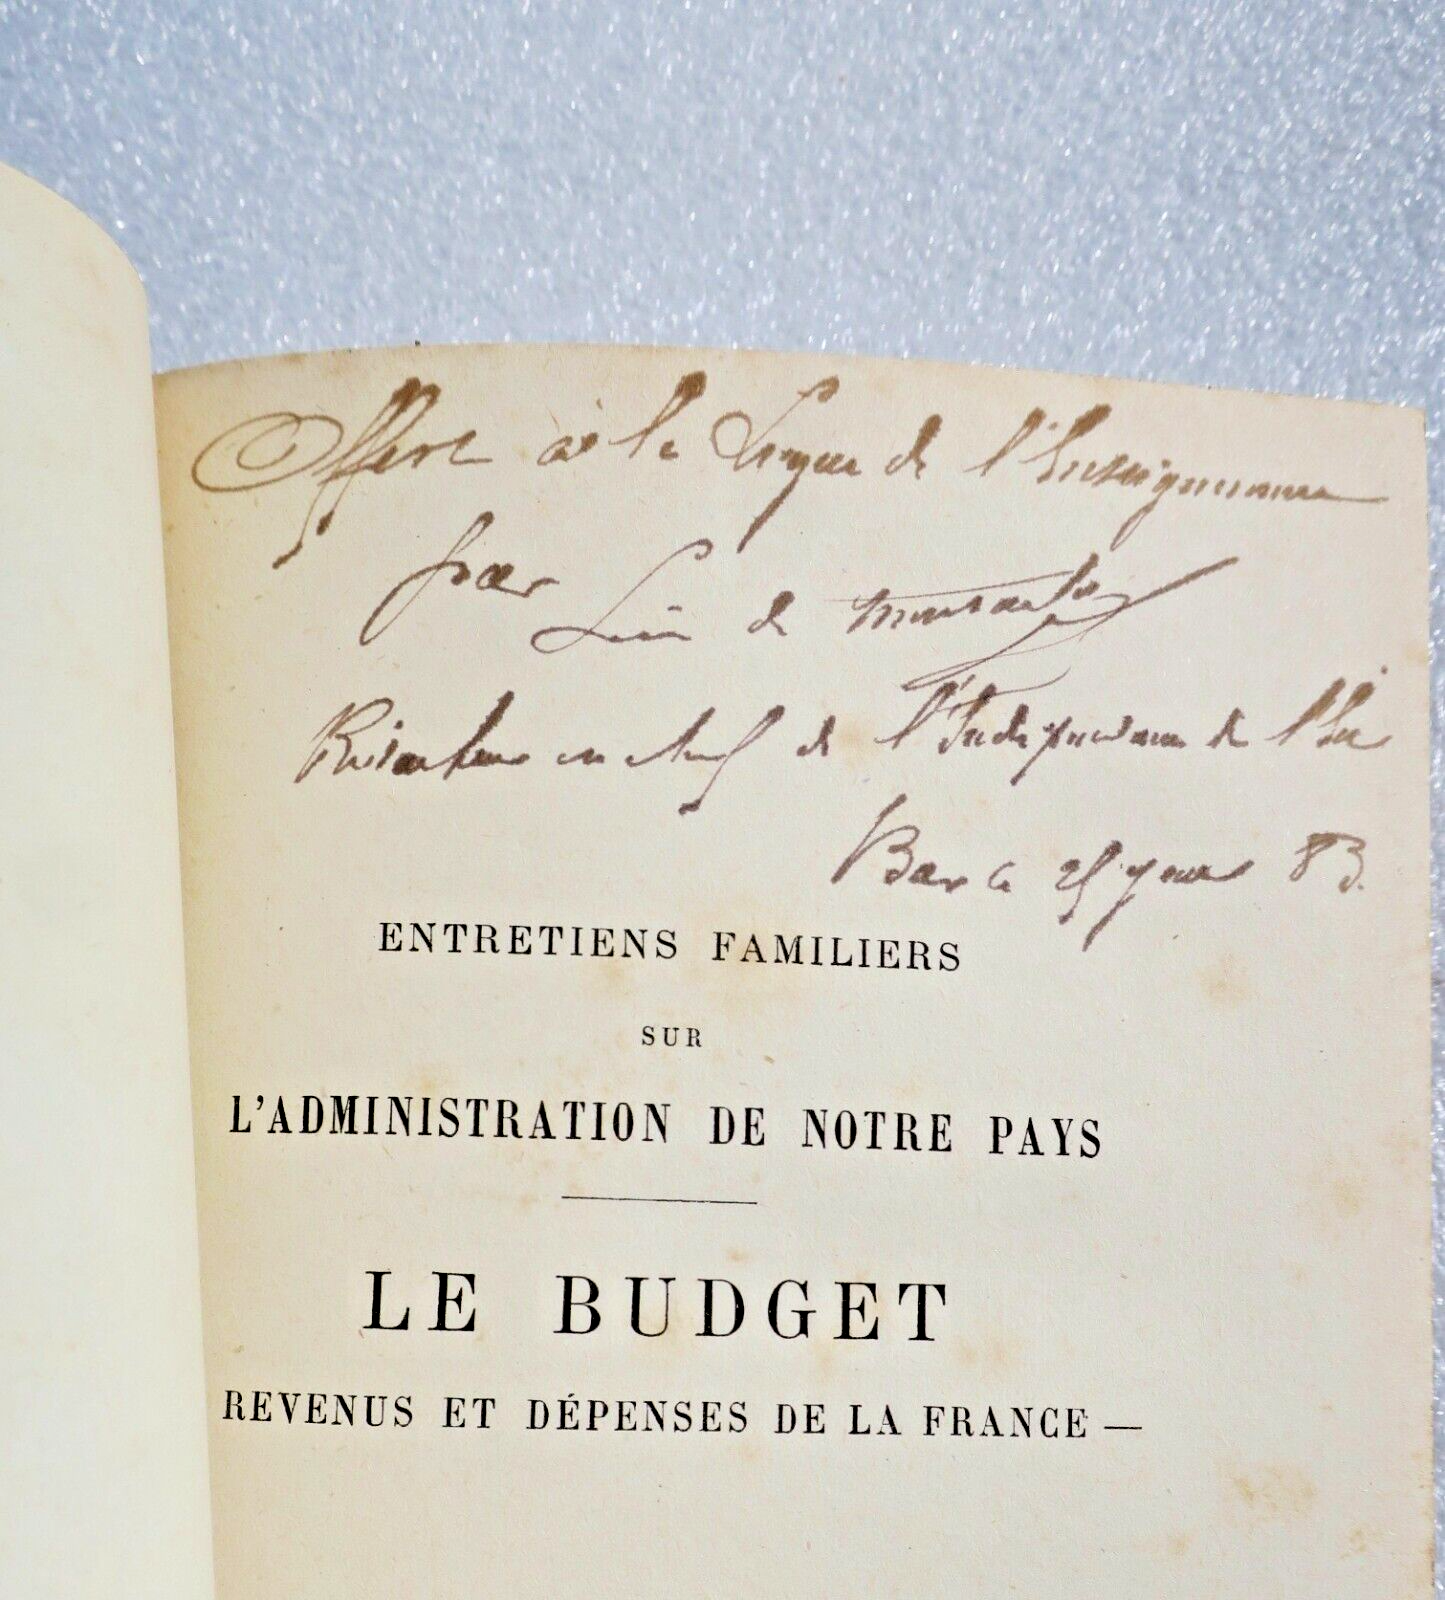 Offert à la Ligue de l'Enseignement
par Léon de
Rédacteur en chef de l'Indépendance de l'Est
Bar le 25 janv 83.
ENTRETIENS FAMILIERS
SUR
L'ADMINISTRATION DE NOTRE PAYS
LE BUDGET
REVENUS ET DÉPENSES DE LA FRANCE —